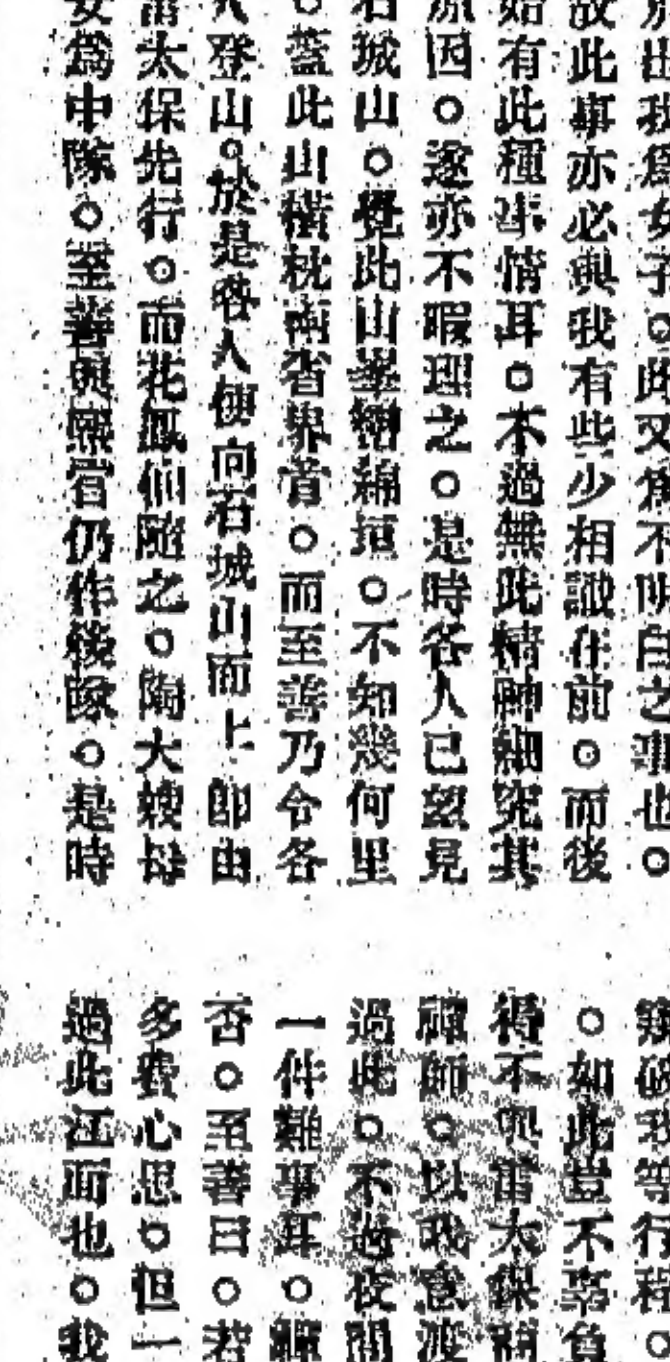 別出我爲女子。此又爲不明白之事也。
故此事亦必與我有些少相識在前。而後
始有此種事情耳。不過無此精神細究其
原因。遂亦不暇理之。是時各人已望見
石城山。覺此山羣巒綿亘。不知幾何里
。蓋此山橫枕兩省界者。而至善乃令各
人登山。於是各人便向石城山而上卽由
雷太保先行。而花鳳仙隨之。陶大嫂母
女爲中隊。至善與熙官仍作後隊。是時
等行程。
。如此豈不辜負
得不與雷太保
禪師。以我意渡
過此。不過夜間
一件難事耳。
否。至善曰。若
多費心思。但一
過此江而也。我